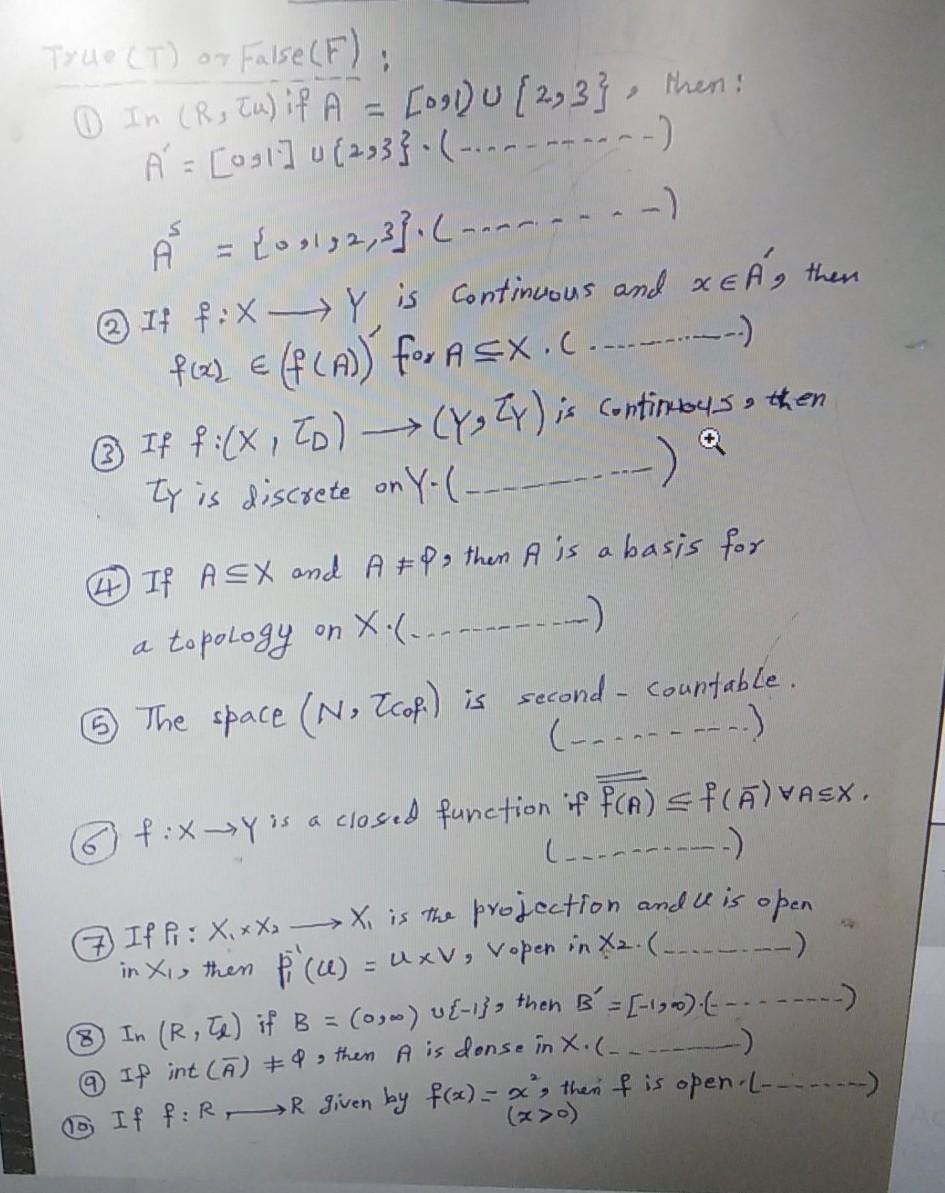 True (T) or False (F) :
① In (R, τu) if A = [0,1) ∪ {2,3}, then:
A′ = [0,1] ∪ {2,3}. (-----------)
Aˢ = {0,1,2,3}. (-----------)
② If f: X → Y is continuous and x ∈ A′, then
f(x) ∈ (f(A))′ for A ⊆ X. (-----------)
③ If f: (X, τD) → (Y, τY) is continuous, then
τY is discrete on Y. (-----------)
④ If A ⊆ X and A ≠ φ, then A is a basis for
a topology on X. (-----------)
⑤ The space (N, τcof.) is second - countable.
(-----------)
⑥ f: X → Y is a closed function if \overline{f(A)} ⊆ f(Ā) ∀ A ⊆ X.
(-----------)
⑦ If P₁: X₁ × X₂ → X₁ is the projection and U is open
in X₁, then P₁⁻¹(U) = U × V, V open in X₂. (-----------)
⑧ In (R, τℓ) if B = (0,∞) ∪ {-1}, then B′ = [-1,∞). (-----------)
⑨ If int (Ā) ≠ φ, then A is dense in X. (-----------)
⑩ If f: R → R given by f(x) = x², then f is open. (-----------)
(x>0)